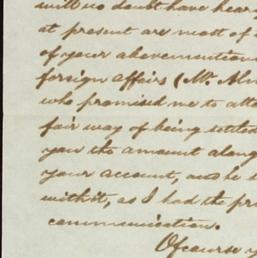 will no doubt have hear
at present are most of
of your abovemention
foreign affairs (Mr.
who promised me to atte
fair way of being settled
you the amount along
your account, and he
with it, as I had the pr
communication.
Of course y